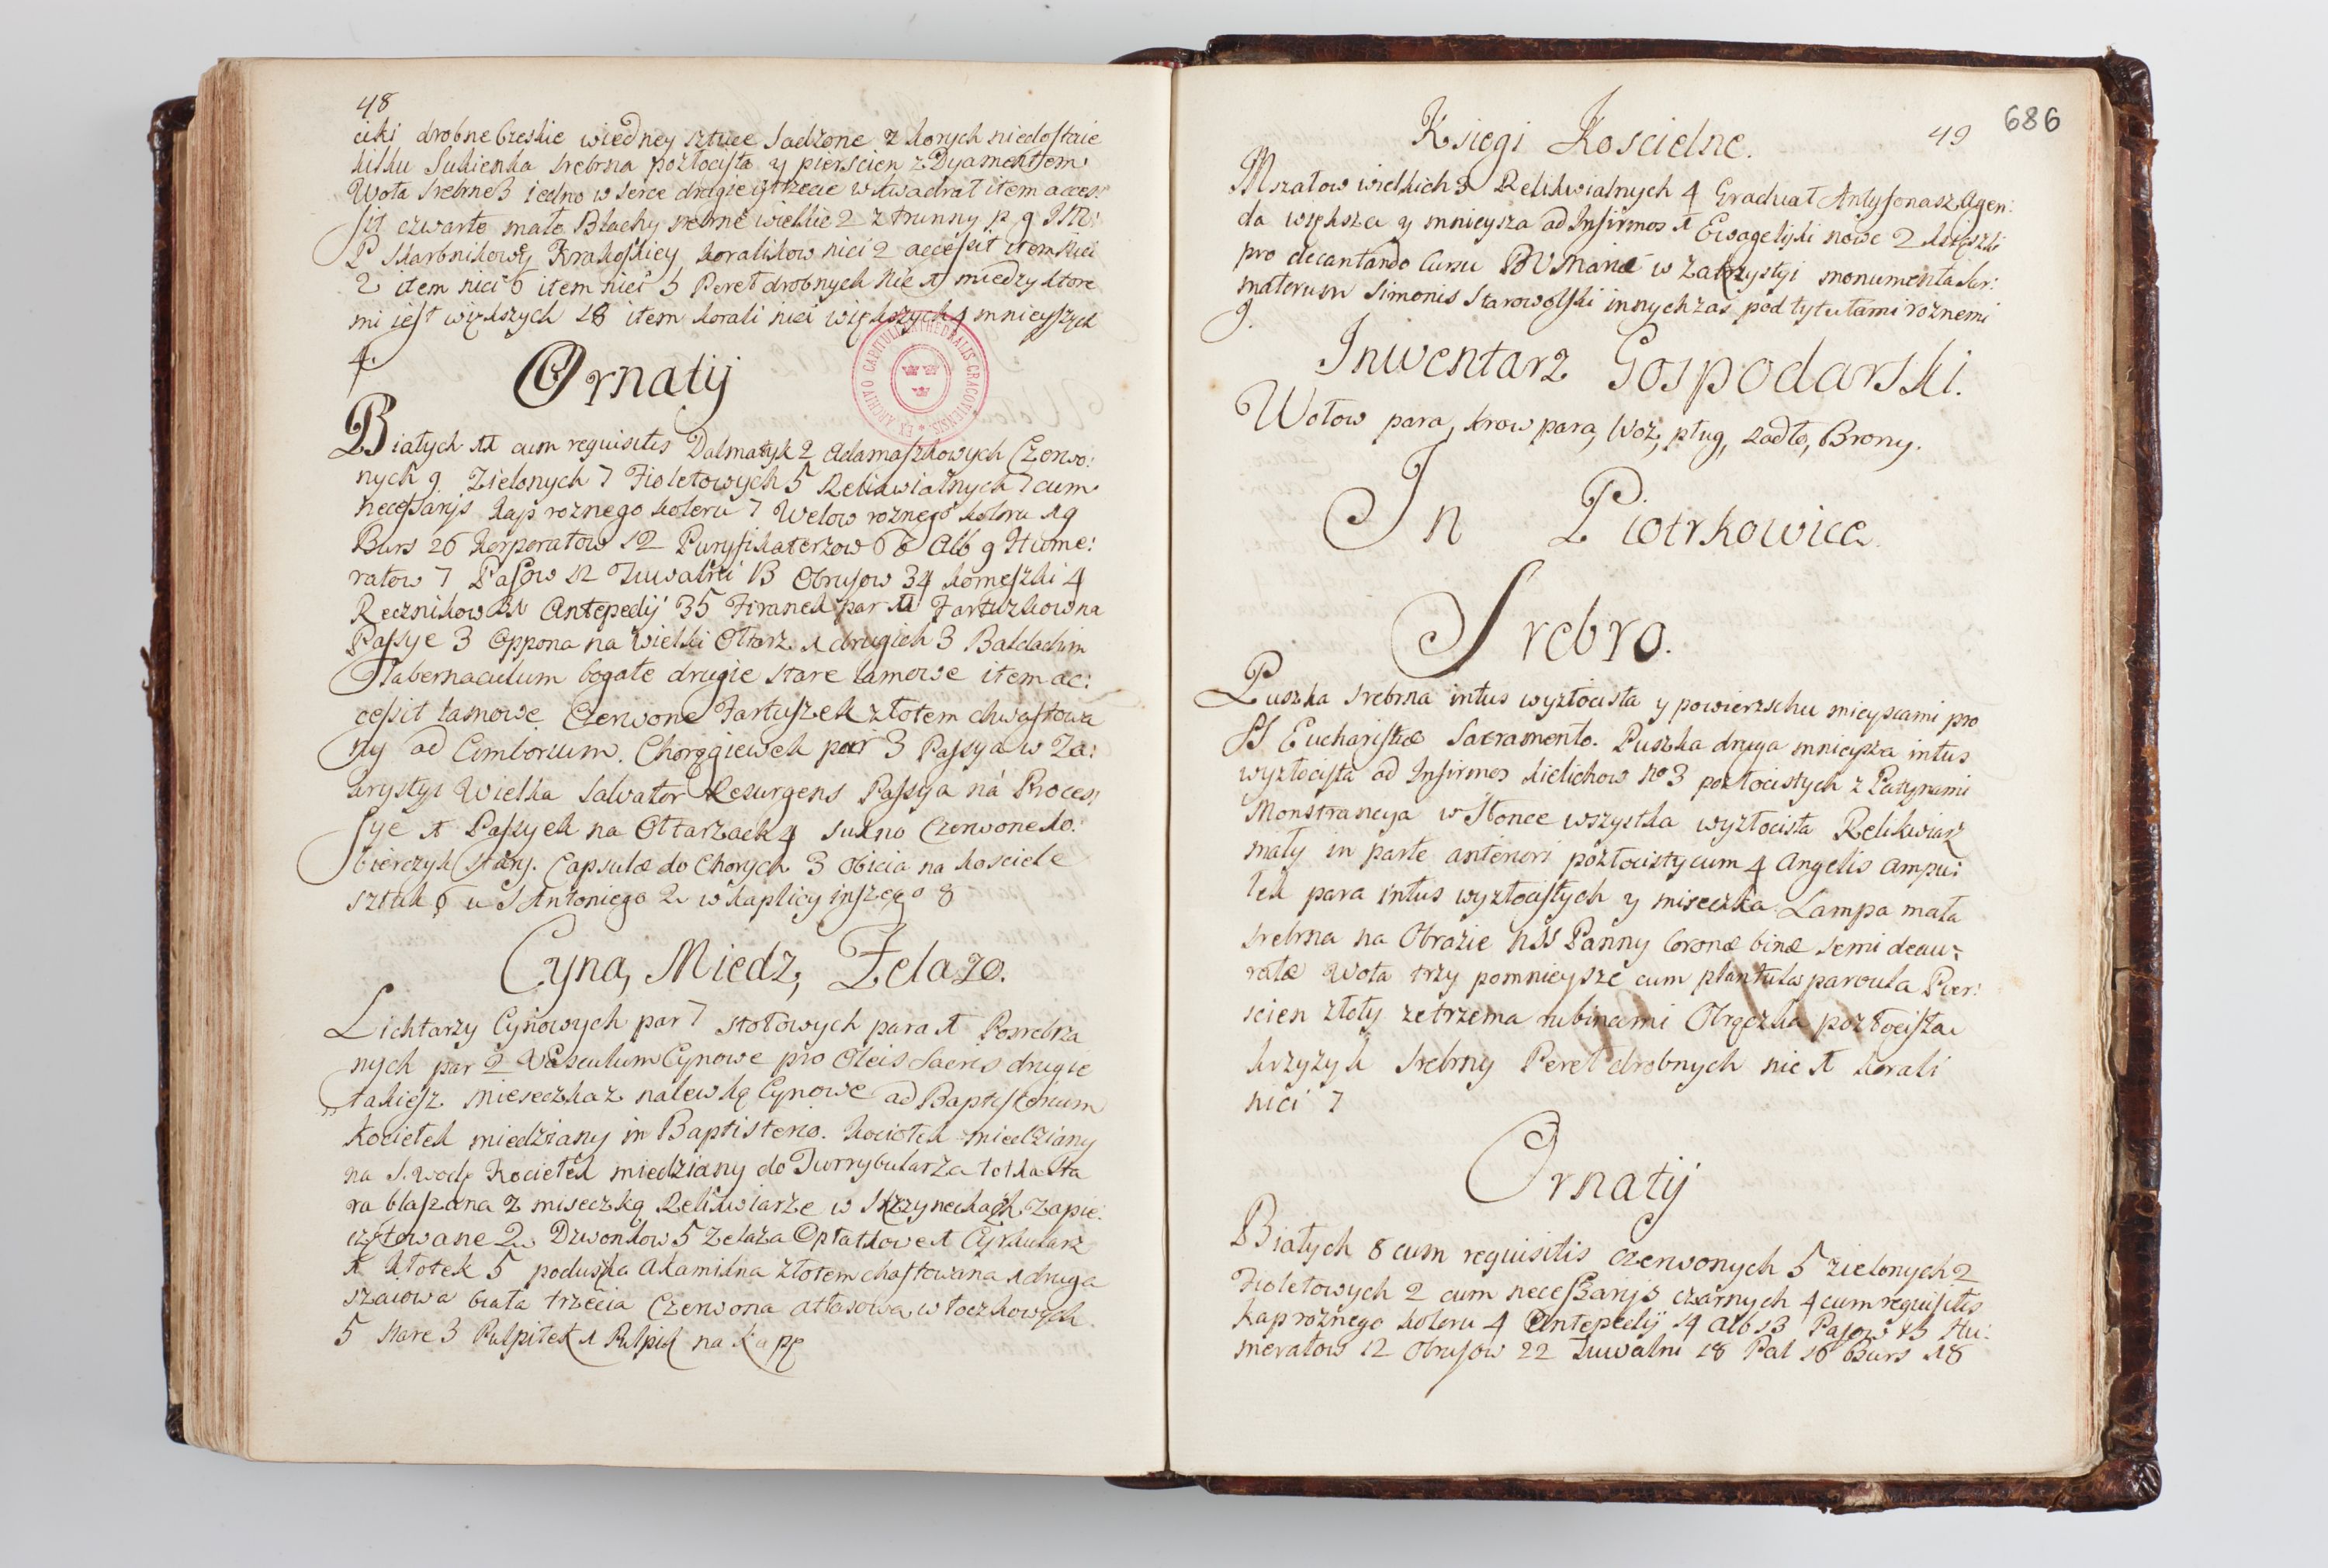 48
ciki drobne Czeskie wiedney sztuce Sadzone z ktorych niedostaie
kilku Sukienka srebrna pozłocista y pierscien z Dyamentem
Wota srebrne 3 iedno w serce drugie y trzecie w kwadrat item acces:
sit czwarte małe Blachy srebrne wielkie 2 z trunny p. g. JM:
P Skarbnikowy Krakoskiey koralikow nici 2 accessit item nici
2 item nici 6 item nici 5 Pereł drobnych nic 1 miedzy ktore
mi iest większych 18 item korali nici większych 4 mnieyszych
4.
EX ARCHIVO CAPITULI CATHEDRALIS CRACOVIENSIS
Ornatij
Białych 11 cum requisitis Dalmatyk 2 Adamaszkowych Czerwo:
nych 9 Zielonych 7 Fioletowych 5 Relikwialnych 7 cum
necessarijs Kap roznego koleru 7 Welow roznego koloru 19
Burs 26 Korporałow 12 Puryfikaterzow 66 Alb 9 Hume:
rałow 7 Pasow 12 Tuwalni 13 Obrusow 34 komeszki 4
Recznikow 21 Antepedij 35 Firanek par 11 Fartuzkow na
Passye 3 Oppona na Wielki Ołtarz 1 drugich 3 Baldachim
Tabernaculum bogate drugie stare lamowe item ac:
cessit lamowe Czerwone Fartuszek złotem chwastowa
ny ad Cimborium. Chorągiewek par 3 Passya w Za:
krystyi Wielka Salvator Resurgens Passya ná Proces
syę 1 Passyek na Ołtarzach 4 Sukno Czerwone Ko:
bierczyk stary. Capsulæ do Chorych 3 Obicia na kosciele
sztuk 6 u S Antoniego 2 w kaplicy inszego 8
Cyna, Miedz, Zelazo.
Lichtarzy Cynowych par 7 stołowych para 1 Posrebrza
nych par 2 Vasculum Cynowe pro Oleis Sacris drugie
takiesz mieseczka z nalewką Cynowe ad Baptisterium
Kociełek miedziany in Baptisterio. Kociołek miedziany
na S. wodę Kociełek miedziany do Turrybularza łotka sta
ra blaszana z miseczką Relikwiarze w Skrzyneckach Zapie:
czętowane 2 Dzwonkow 5 Zelaza Opłatkowe 1 Cyrkularz
1 Kłotek 5 poduszka Akamitna złotem chastowana 1 druga
szaiowa biała trzecia Czerwona atłasowa w łoczkowych
5 stare 3 Pulpitek 1 Pulpit na Kapę
686
49
Ksiegi Koscielne.
Mszałow wielkich 3 Relikwialnych 4 Graduał Antyfonasz Agen:
da większa y mnieysza ad Infirmos 1 Ewagelijki nowe 2 księszki
pro decantando Cursu BV Mariæ w Zakrystyi monumenta Sar:
matorum Simonis Starowolski innych zas pod tytułami roznemi
9.
Inwentarz Gospodarski.
Wołow para, krow para, Woz, pług, radło, Brony.
In Piotrkowice
Srebro.
Puszka srebrna intus wyzłocista y powierzchu mieyscami pro
SS Eucharistiæ Sacramento. Puszka druga mnieysza intus
wyzłocista ad Infirmos Kielichow No 3 pozłocistych z Patynami
Monstrancya w Słonce wszystka wyzłocista Relikwiarz
mały in parte anteriori pozłocisty cum 4 Angelis Ampu:
łek para intus wyzłocistych y miseczka Lampa mała
srebrna na Obrazie NSS Panny Coronæ binæ semi deau:
ratæ Wota trzy pomnieysze cum plantula parvula Pier:
scien złoty ze trzema rubinami Obrączka pozłocista
krzyzyk srebrny Pereł drobnych nic 1 korali
nici 7
Ornatij
Białych 8 cum requisitis czerwonych 5 zielonych 2
Fioletowych 2 cum necessarijs czarnych 4 cum requisitis
Kap roznego koloru 4 Antepedij 14 Alb 13 Pasow 13 Hu:
merałow 12 Obrusow 22 Tuwalni 18 Pal 16 Burs 18